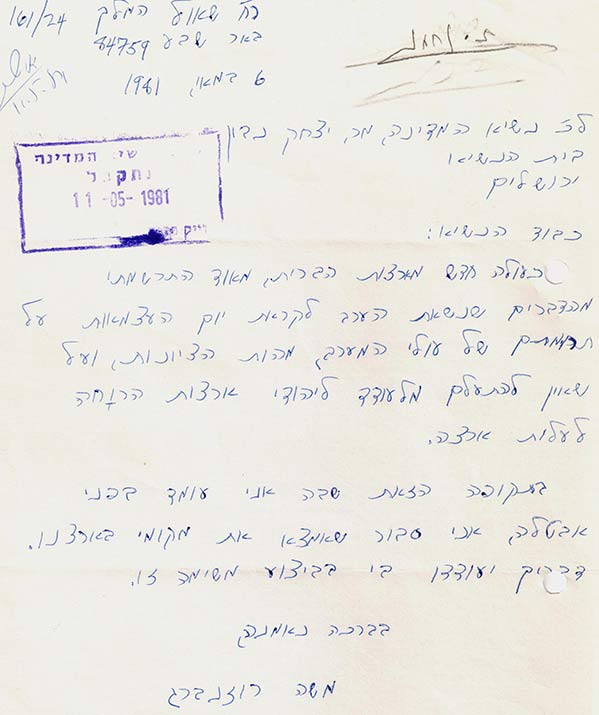 רח' שאול המלך 161/24
באר שבע 84759
6 במאי, 1981
11.5.81
שי המדינה
נתקבל
11 -05- 1981
תיק
לכ' נשיא המדינה, מר יצחק נבון
בית הנשיא
ירושלים
כבוד הנשיא:
כעולה חדש מארצות הברית, מאוד התרשמתי
מהדברים שנשאת הערב לקראת יום העצמאות על
תרומתם של עולי המערב, מהות הציונות, ועל
שאין להתעלם מלעודד ליהודי ארצות הרוָחה
לעלות ארצה.
בתקופה הזאת שבה אני עומד בפני
אבטלה, אני סבור שאמצא את מקומי בארצנו.
דבריך יעודדו בי בביצוע משימה זו.
בברכה נאמנה,
משה רוזנברג